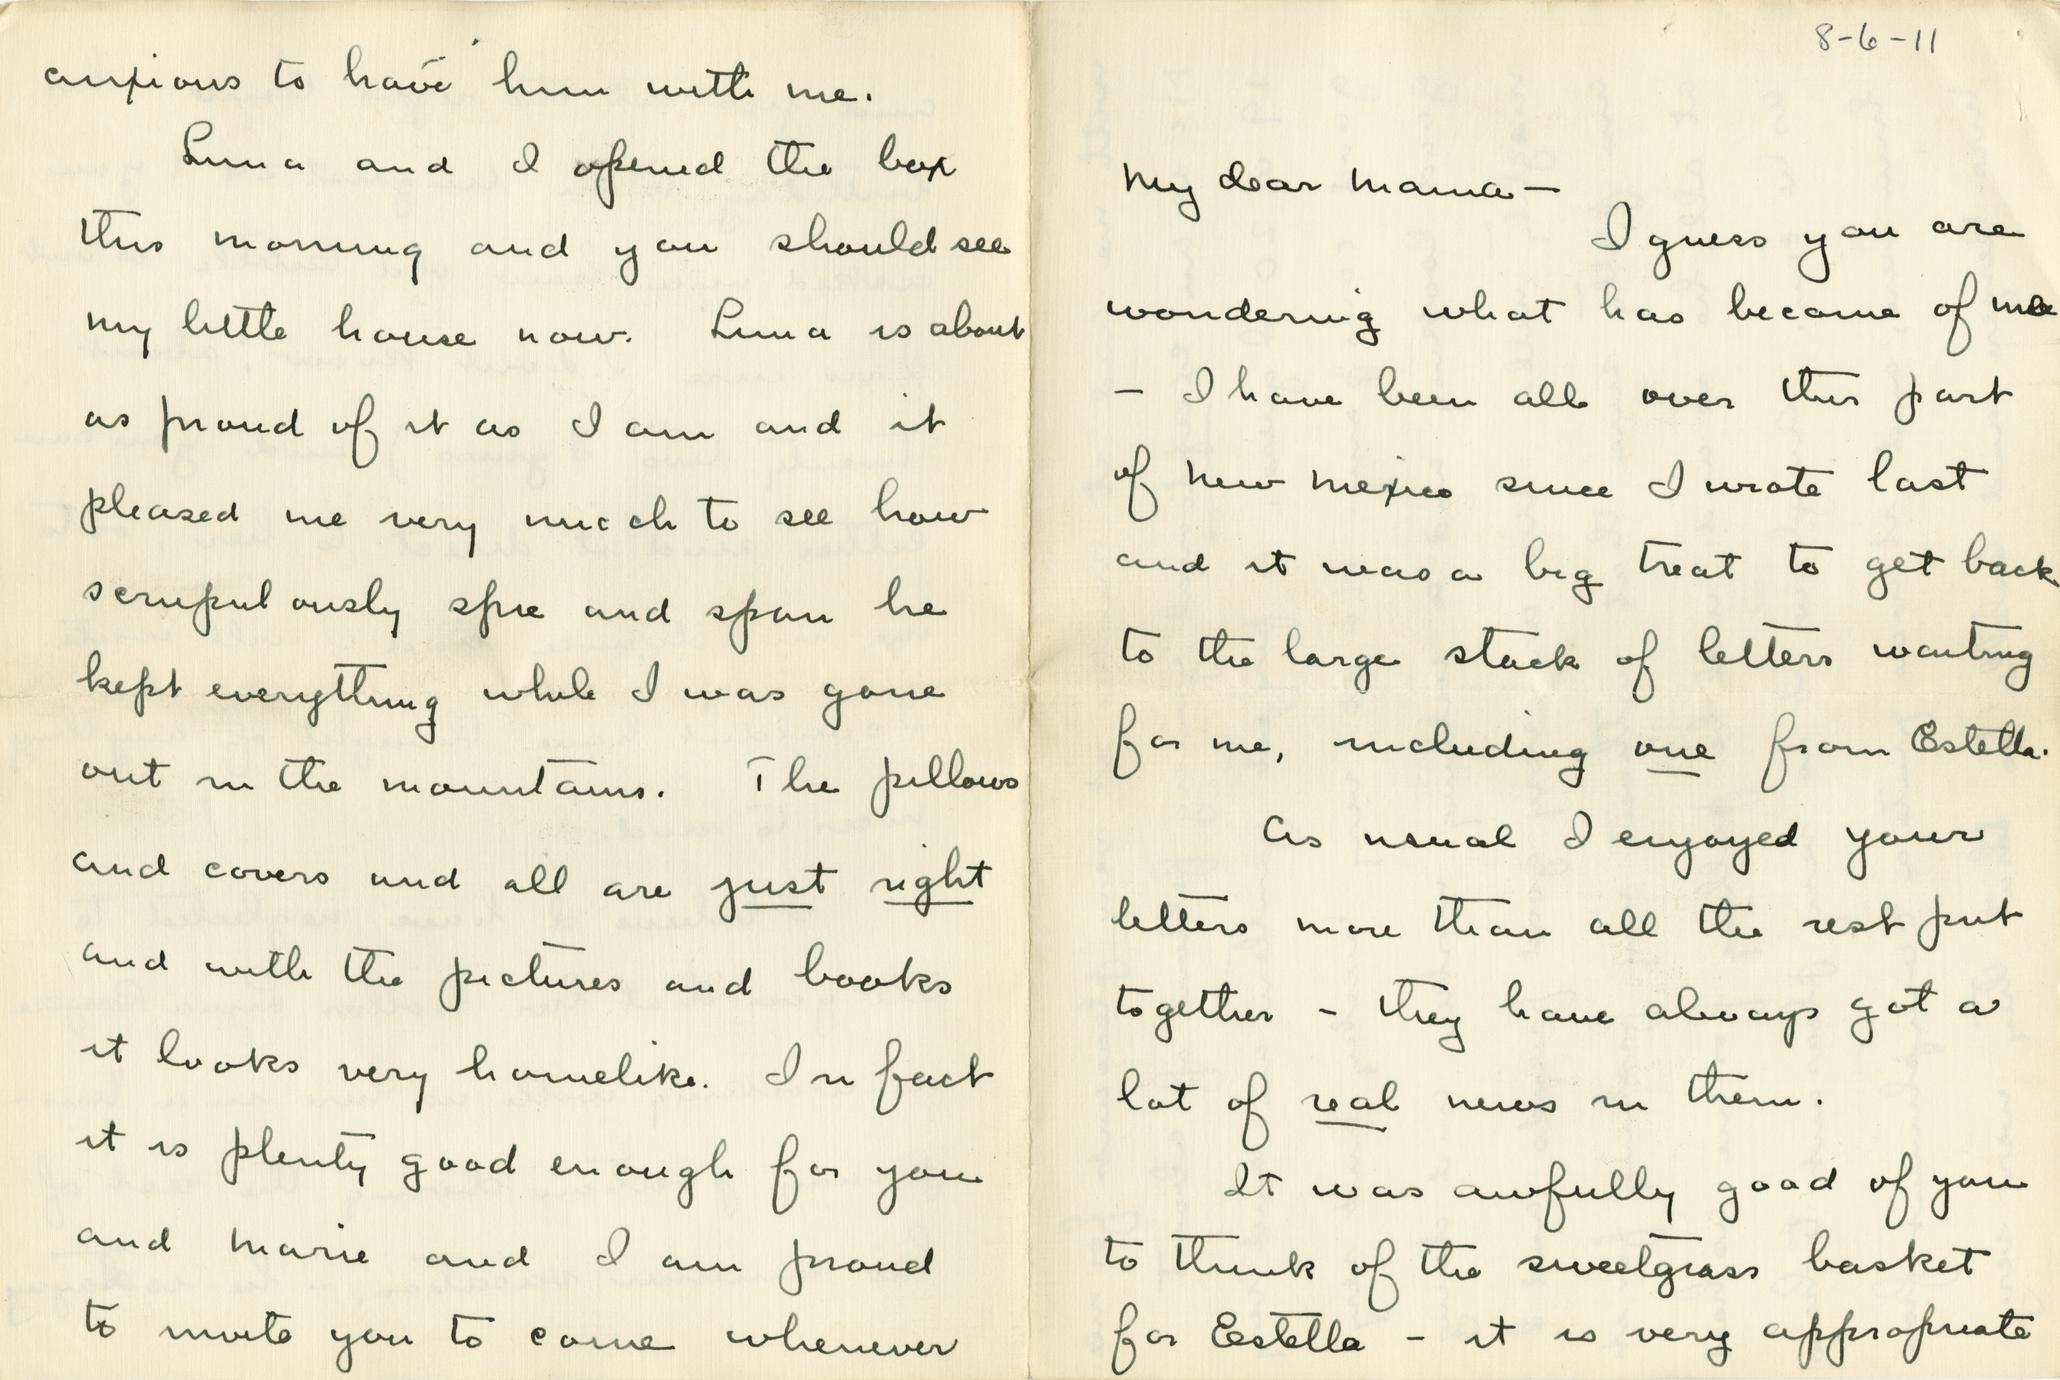 8-6-11
My dear Mama —
I guess you are
wondering what has become of me
— I have been all over this part
of New Mexico since I wrote last
and it was a big treat to get back
to the large stack of letters waiting
for me, including one from Estella.
As usual I enjoyed your
letters more than all the rest put
together – they have always got a
lot of real news in them.
It was awfully good of you
to think of the sweetgrass basket
for Estella – it is very appropriate
anxious to have him with me.
Luna and I opened the box
this morning and you should see
my little house now. Luna is about
as proud of it as I am and it
pleased me very much to see how
scrupulously spic and span he
kept everything while I was gone
out in the mountains. The pillows
and covers and all are just right
and with the pictures and books
it looks very homelike. In fact
it is plenty good enough for you
and Marie and I am proud
to invite you to come whenever